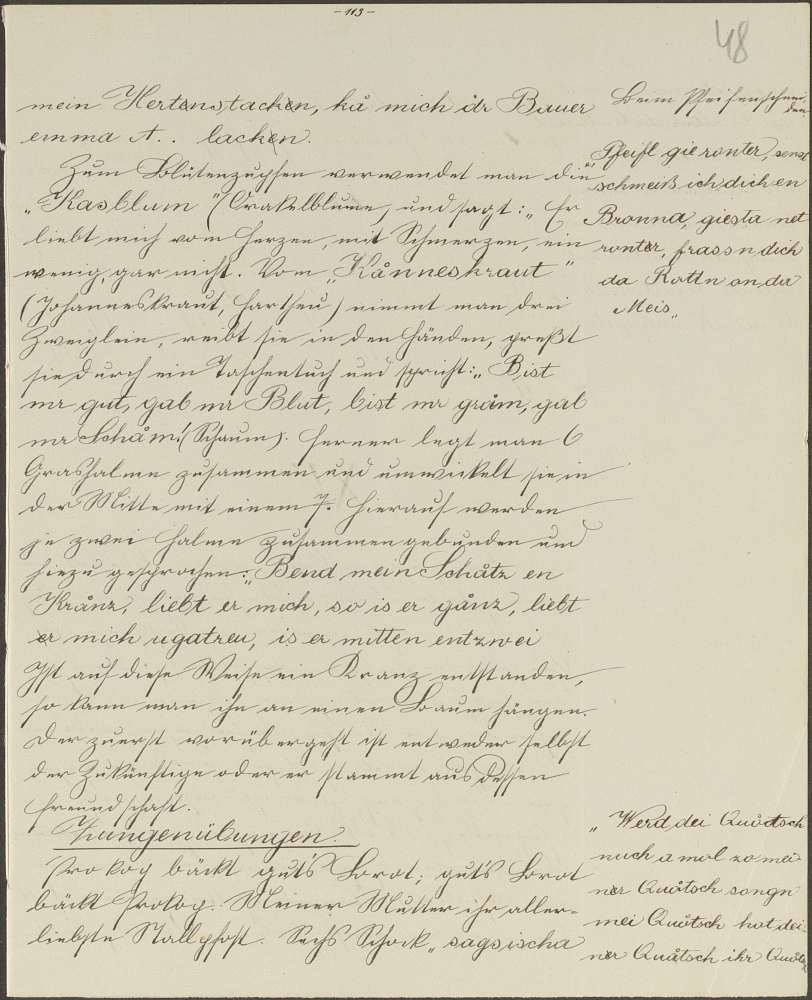 - 113 -
48
mein Hertenstacken, kå mich dr Bauer
emma A.. lacken.
Zum Blütenzupfen verwendet man die
„Kasblum" (Orakelblume, und sagt: „Er
liebt mich vom Herzen, mit Schmerzen, ein
wenig, gar nicht. Vom „Kånneskraut"
(Johanneskraut, Hartheu) nimmt man drei
Zweiglein, reibt sie in den Händen, preßt
sie durch ein Taschentuch und spricht: „Bist
mr gut, gab mr Blut, bist mr gråm, gab
mr Schåm! (Schaum). Ferner legt man 6
Grashalme zusammen und umwickelt sie in
der Mitte mit einem 7. Hierauf werden
je zwei Halme zusammengebunden und
hiezu gesprochen: „Bend mein Schåtz en
Krånz, liebt er mich, so is er gånz, liebt
er mich ugatreu, is er mitten entzwei
Ist auf diese Weise ein Kranz entstanden,
so kann man ihn an einen Baum hängen.
Der zuerst vorübergeht ist entweder selbst
der Zukünftige oder er stammt aus dessen
Freundschaft.
Zungenübungen.
Prokop bäckt gut's Brot; gut's Brot
bäckt Prokop. Meiner Mutter ihr aller-
liebste Stallpfost. Sechs Schock „sagsischa
Beim Pfeifenschnei-
den
Pfeifl gie ronter, sonst
schmeiß ich dich en
Bronna, giesta net
ronter, frassn dich
da Rottn on da
Meis„
„Werd dei Quåtsch
nuch a mol zo mei-
ner Quåtsch songn
mei Quåtsch hot dei-
ner Quåtsch ihr